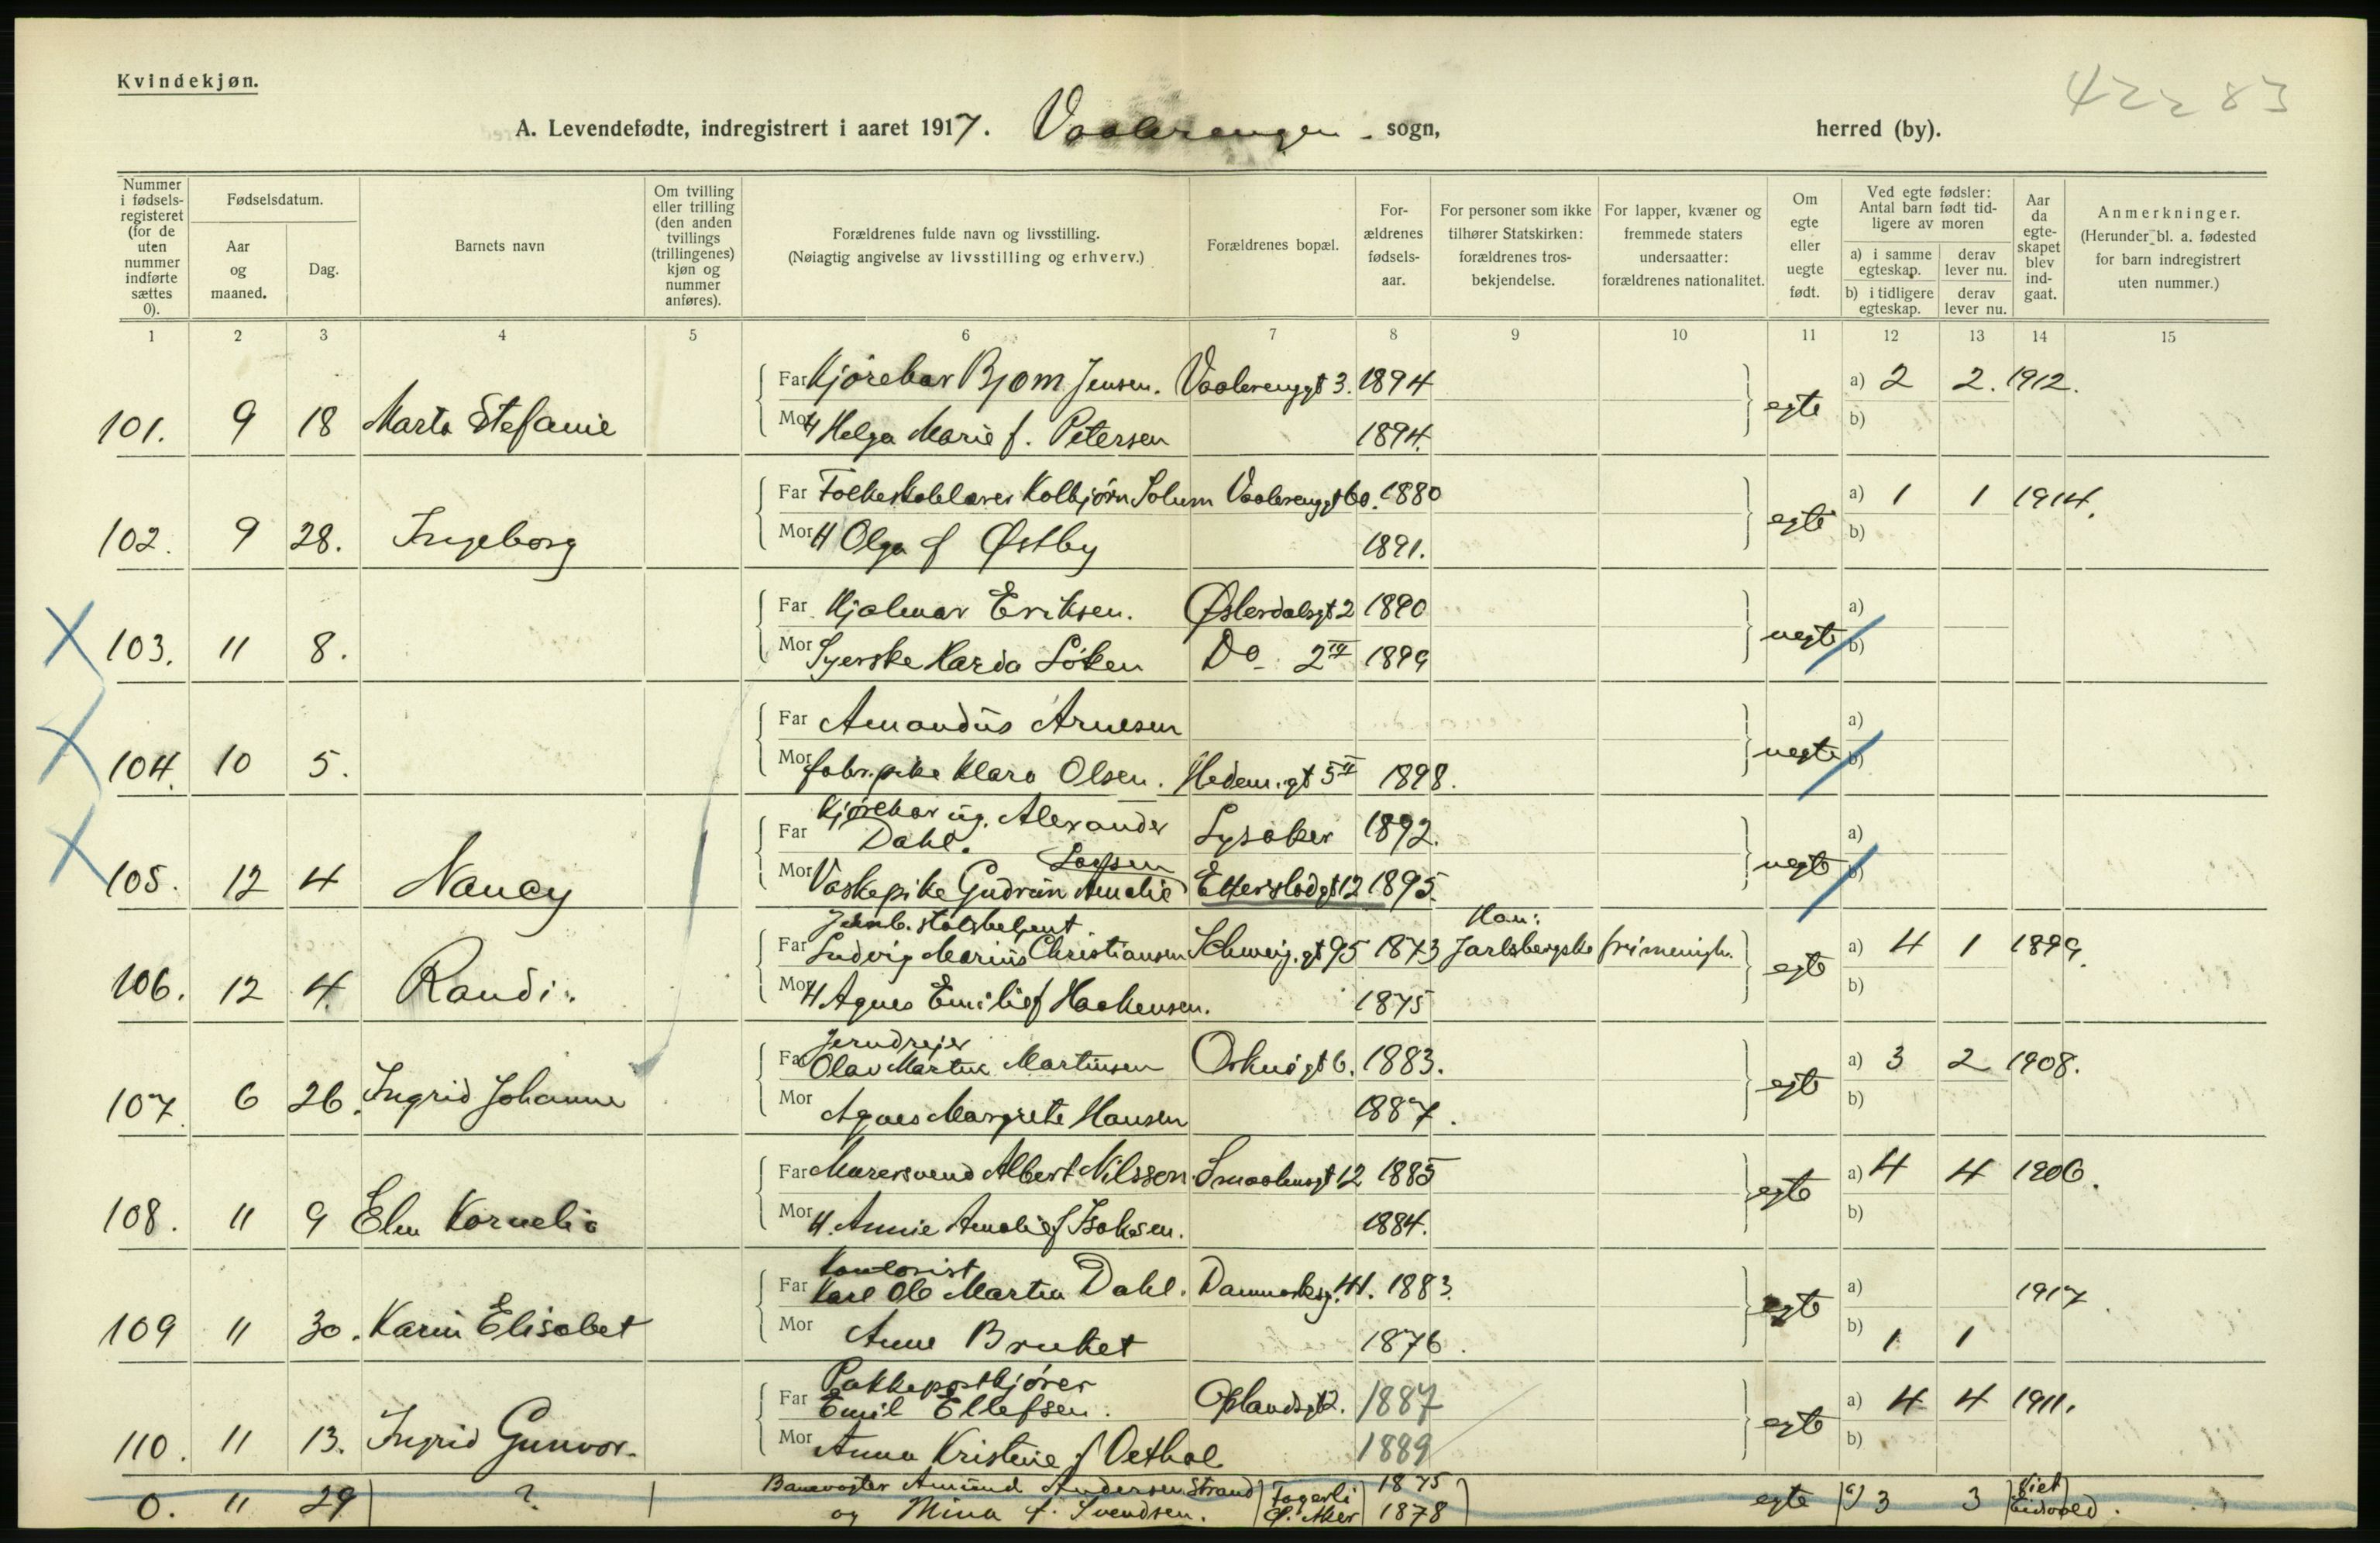 Kvindekjøn.
42283
A. Levendefødte, indregistrert i aaret 1917. Vaalerengen sogn, herred (by).
Nummer i fødselsregisteret (for de uten nummer indførte sættes 0).
Fødselsdatum.
Aar og maaned.
Dag.
Barnets navn
Om tvilling eller trilling (den anden tvillings (trillingenes) kjøn og nummer anføres).
Forældrenes fulde navn og livsstilling.
(Nøiagtig angivelse av livsstilling og erhverv.)
Forældrenes bopæl.
Forældrenes fødselsaar.
For personer som ikke tilhører Statskirken: forældrenes trosbekjendelse.
For lapper, kvæner og fremmede staters undersaatter: forældrenes nationalitet.
Om egte eller uegte født.
Ved egte fødsler: Antal barn født tidligere av moren
a) i samme egteskap. derav lever nu.
b) i tidligere egteskap. derav lever nu.
Aar da egteskapet blev indgaat.
Anmerkninger.
(Herunder bl. a. fødested for barn indregistrert uten nummer.)
1 2 3 4 5 6 7 8 9 10 11 12 13 14 15
Far Kjørekar Bjorn Jensen. Vaalerenggt 3. 1894 a) 2 2. 1912.
101. 9 18 Marta Stefanie egte
Mor H Helga Marie f. Petersen 1894. b)
Far Folkeskolelærer Kolbjørn Solum Vaalerenggt 60. 1880 a) 1 1 1914.
102. 9 28. Ingeborg egte
Mor H Olga f Østby 1891. b)
Far Hjalmar Eriksen. Østerdalsgt 2 1890 a)
103. 11 8. uegte
Mor Syerske Harda Löken Do 2 IV 1899 b)
Far Amandus Arnesen a)
104. 10 5. uegte
Mor fabr.pike Klara Olsen. Hedem.gt 5 II 1898. b)
Kjørekar ug. Alexander
Far Dahl. Lysaker 1892. a)
105. 12 4 Nancy uegte
Mor Vaskepike Gudrun Amalie Etterstadgt 12 1895. b)
Han:
Far Ludvig Marius Christiansen Schweig.gt 95 1873 Jarlsbergske frimenigh. a) 4 1 1899.
106. 12 4. Randi. egte
Mor H Agnes Emilie f Haakensen. 1875 b)
Jerndreier
Far Olav Martin Martinsen 6. 1883. a) 3 2 1908.
107. 6 26. Ingrid Johanne egte
Mor Agnes Margrete Hansen 1887. b)
Far Murersvend Albert Nilssen. Smaalensgt 12 1885 a) 4 4 1906.
108. 11 9 Elen Kornelia egte
Mor H. Annie Amalie f Isaksen. 1884. b)
Kontorist
Far Karl Ole Martin Dahl. Danmarksg. 41. 1883. a) 1917.
109 11 30. Karin Elisabet egte
Mor Anne Bruket 1876. b) 1 1
Pakkepostkjører
Far Emil Ellefsen. Oplandsgt 2. 1887 a) 4 4 1911.
110. 11 13. Ingrid Gunvor. egte
Mor Anna Kristine f Oethol 1889 b)
Banevogter Amund Andersen Strand Fagerli 1875
0. 11 29 ? egte a) 3 3 Viet Eidsvold.
og Mina f. Svendsen. Ø. Aker 1878